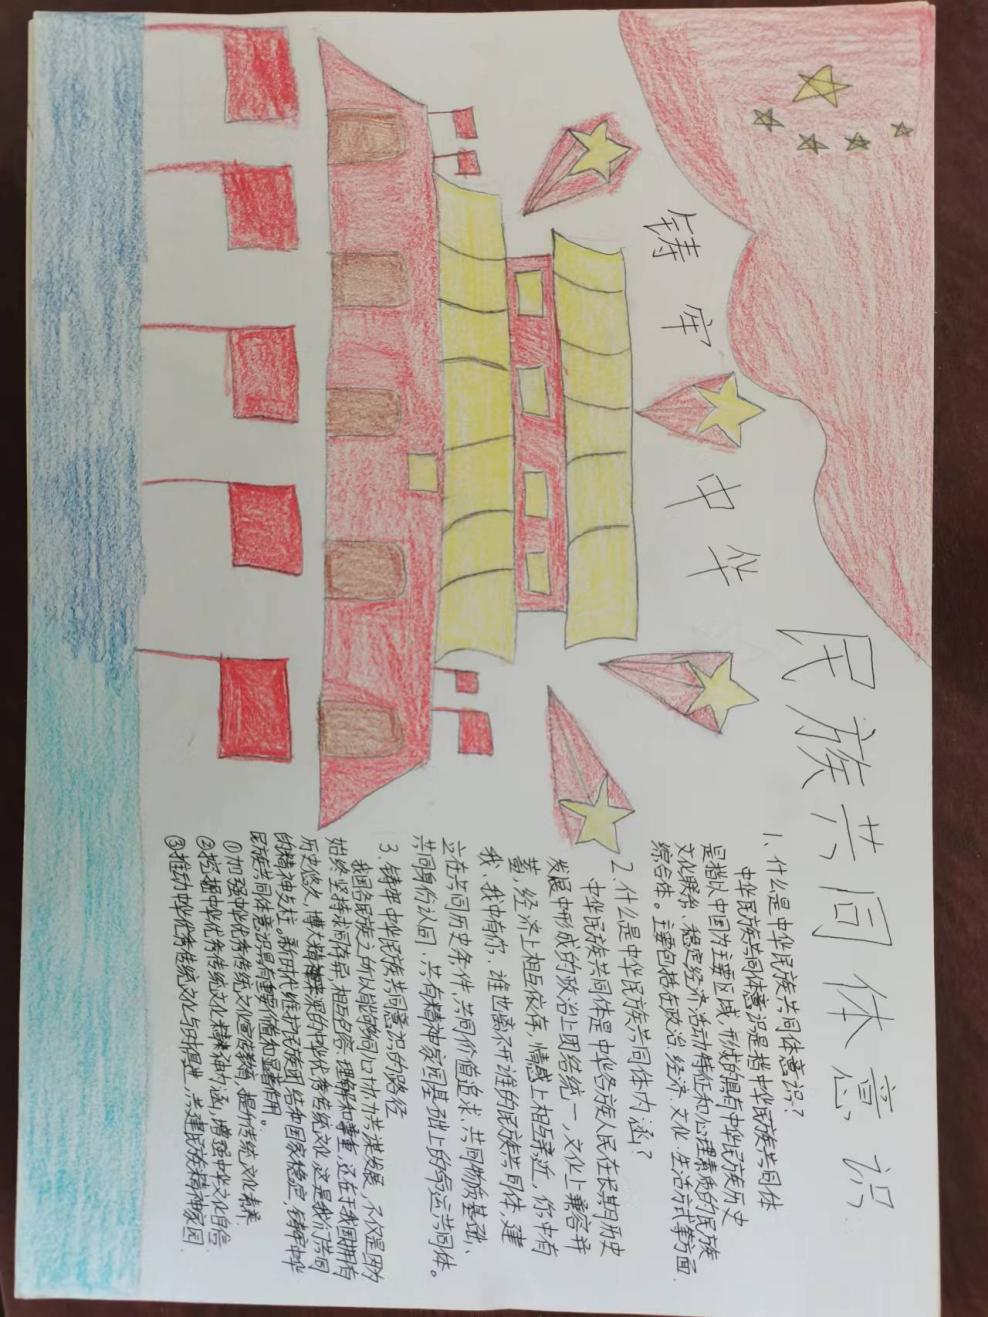 铸牢中华
民族共同体意识
1、什么是中华民族共同体意识？
中华民族共同体意识是指中华民族共同体
是指以中国为主要区域，形成的具有中华民族历史
文化联系、稳定经济活动特征和心理素质的民族
综合体。主要包括在政治、经济、文化、生活方式等方面.
2、什么是中华民族共同体内涵？
中华民族共同体是中华各族人民在长期历史
发展中形成的政治上团结统一，文化上兼容并
蓄，经济上相互依存，情感上相互亲近，你中有
我，我中有你，谁也离不开谁的民族共同体，建
立在共同历史条件、共同价值追求、共同物质基础、
共同身份认同、共有精神家园基础上的命运共同体。
3、铸牢中华民族共同意识的路径
我国各民族之所以能够同心协力共谋发展，不仅是因为
始终坚持求同存异、相互包容、理解和尊重，还在于我国拥有
历史悠久，博大精深的中华优秀传统文化，这是我们共同
的精神支柱。新时代维护民族团结和国家稳定，铸牢中华
民族共同体意识具有重要价值和显著作用。
①加强中华优秀传统文化宣传教育，提升传统文化素养
②挖掘中华优秀传统文化精神内涵，增强中华文化自信
③推动中华优秀传统文化与时俱进，共建民族精神家园.